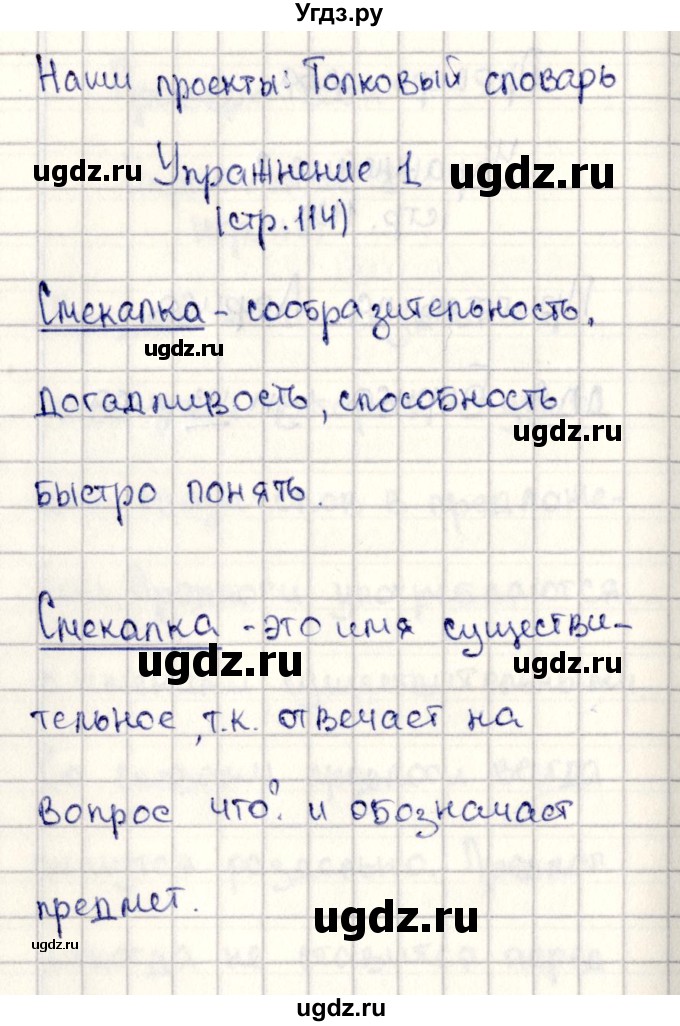 Угдз.ру
Наши проекты: Толковый словарь
ugdz.ru Упражнение 1 ugdz.ru
(стр.114)
Смекалка - сообразительность,
ugdz.ru
догадливость, способность
ugdz.ru
быстро понять.
Смекалка - это имя существи-
ugdz.ru ugdz.ru
тельное, т.к. отвечает на
вопрос что? и обозначает
ugdz.ru
предмет.
ugdz.ru
ugdz.ru
ugdz.ru